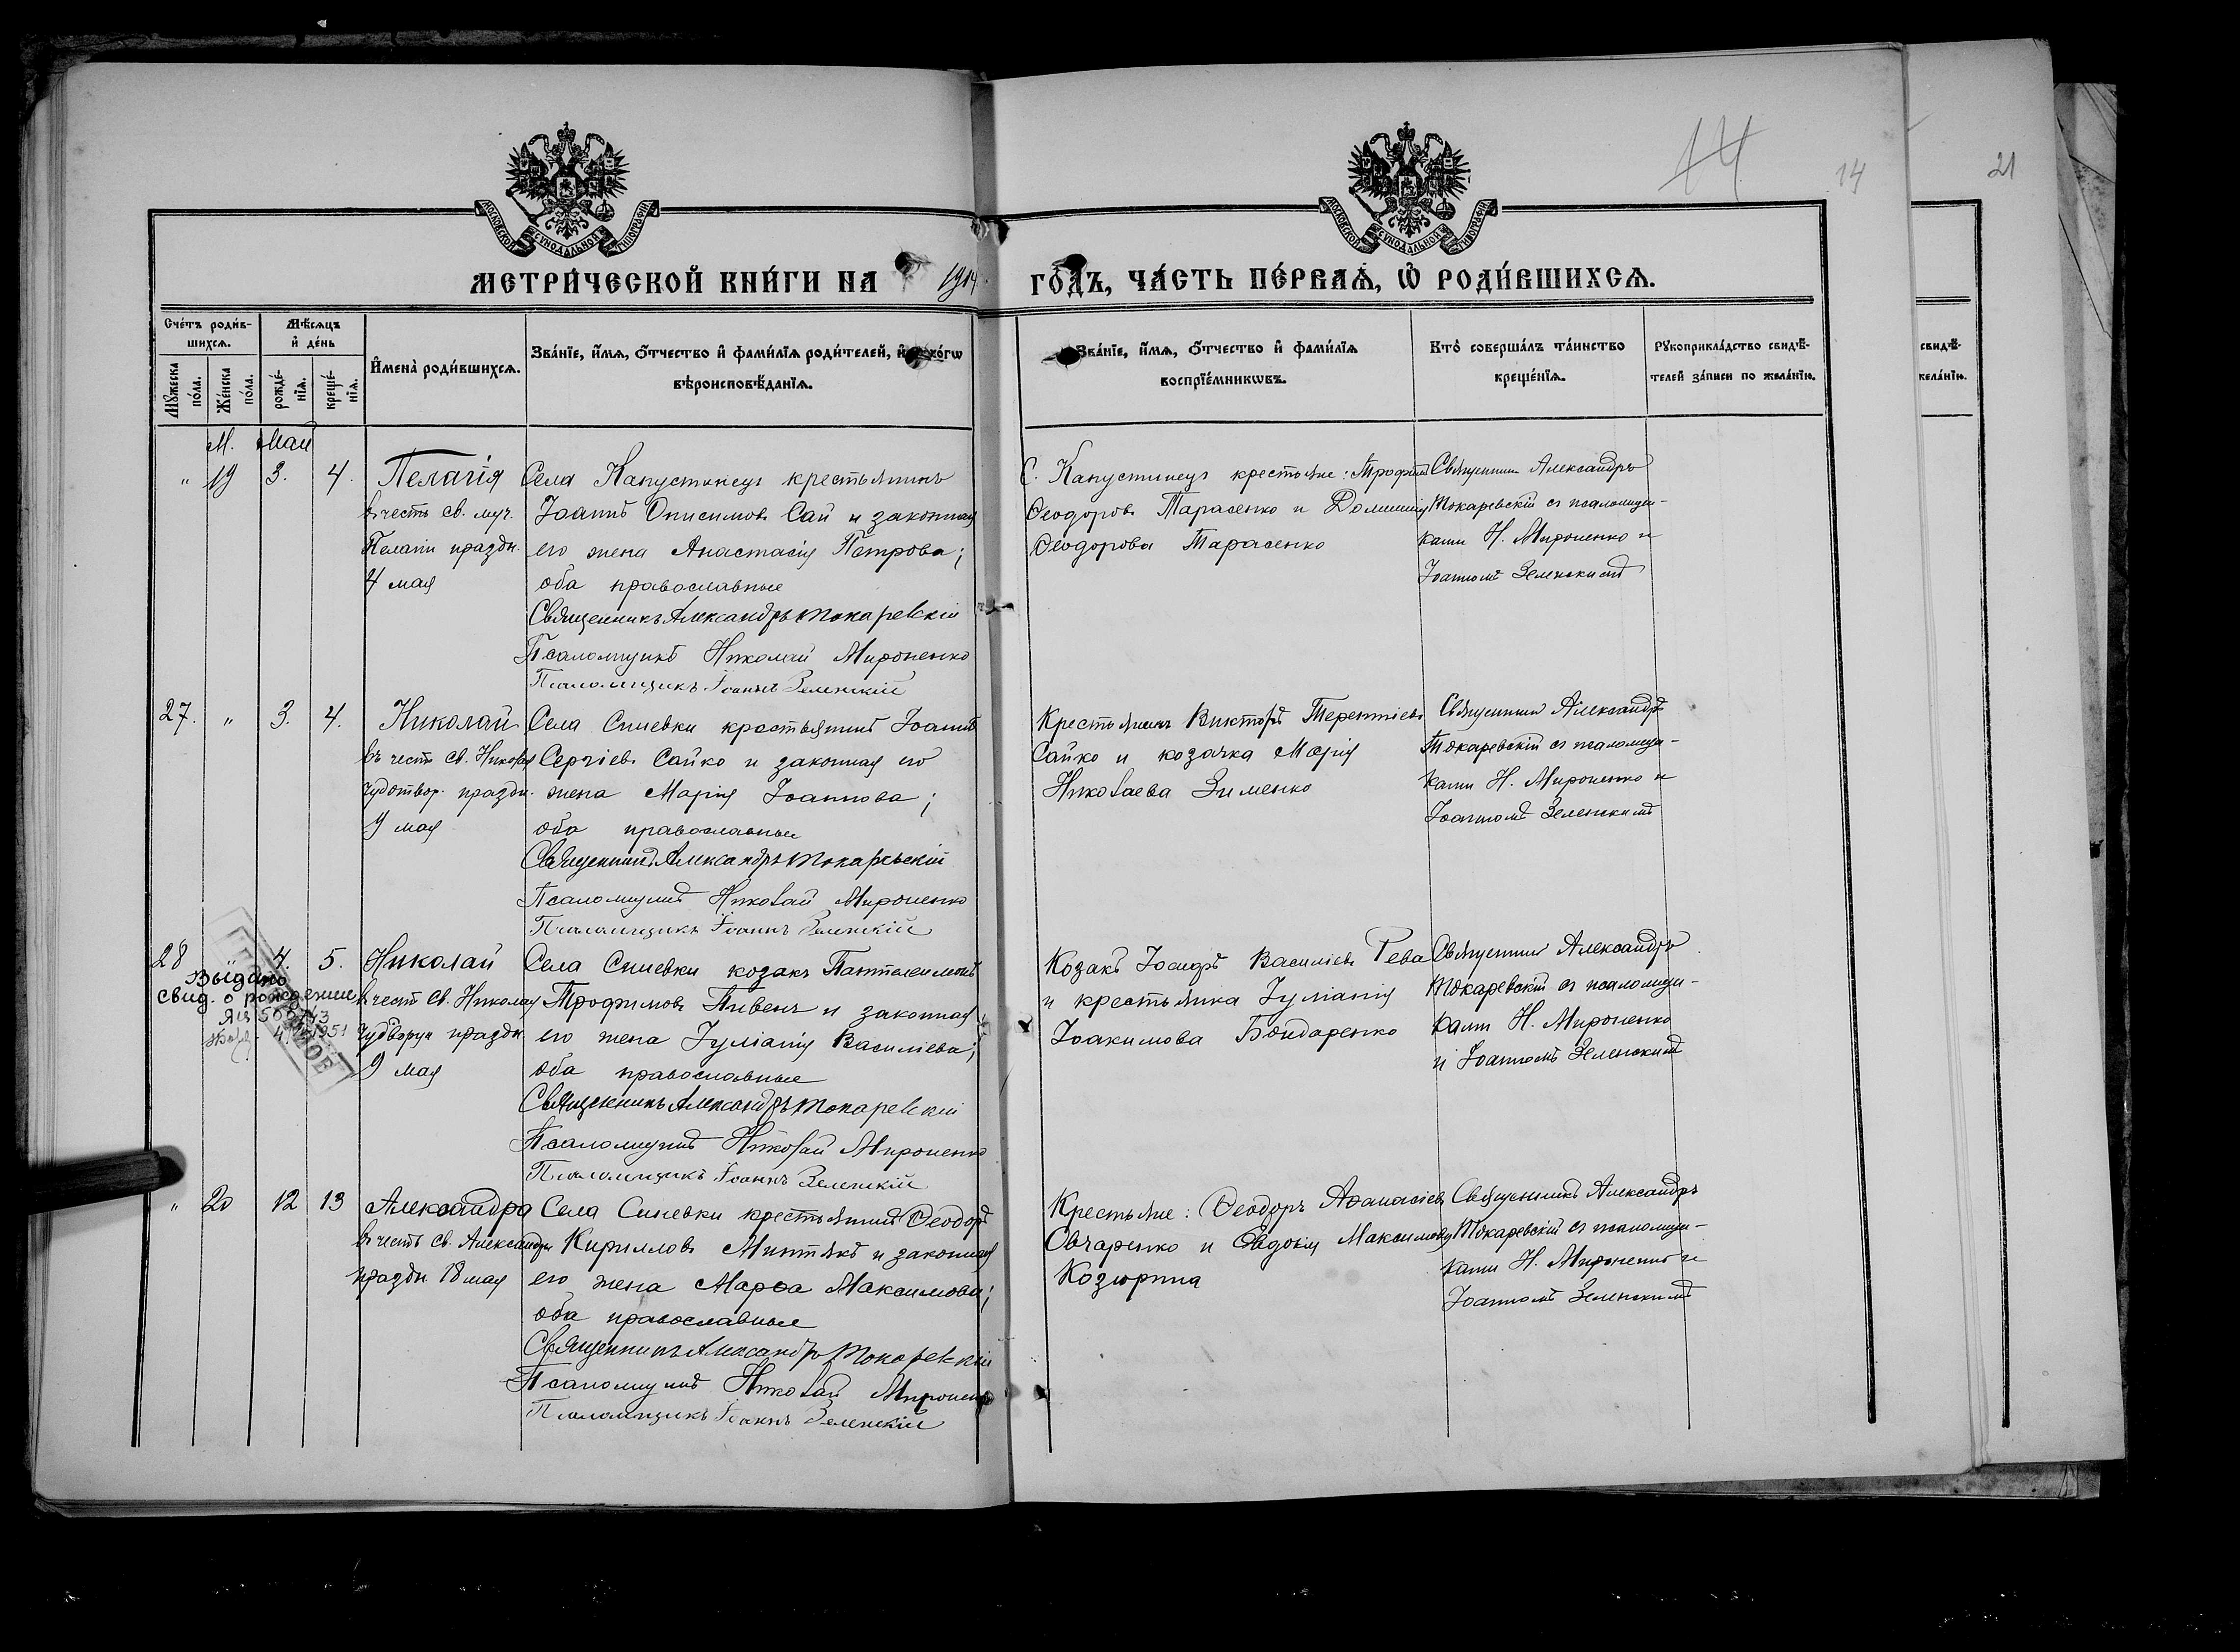 14
14
21
МОСКОВСКОЙ СУНОДАЛЬНОЙ ТИПОГРАФІИ
МОСКОВСКОЙ СУНОДАЛЬНОЙ ТИПОГРАФІИ
МЕТРИ́ЧЕСКОЙ КНИ́ГИ НА 1914 ГО́ДЪ, ЧА́СТЬ ПЕ́РВАѦ, Ѡ҆ РОДИ́ВШИХСѦ.
Сче́тъ роди́в-
шихсѧ.
Мꙋ́жеска по́ла.
Же́нска по́ла.
Мѣ́сѧцъ
и҆ де́нь
рожде́-
нїѧ.
креще́-
нїѧ.
И҆мена̀ роди́вшихсѧ.
Зва́нїе, и҆́мѧ, ѻ҆́тчество и҆ фами́лїѧ роди́телей, и҆ ко́гѡ
вѣроисповѣ́данїѧ.
Зва́нїе, и҆́мѧ, ѻ҆́тчество и҆ фами́лїѧ
воспрїе́мникѡвъ.
Кто̀ соверша́лъ та́инство
креще́нїѧ.
Рꙋкоприкла́дство свидѣ́-
телей за́писи по жела́нїю.
свидѣ́-
жела́нїю.
М. Май
" 19 3. 4.
Пелагія
въ честь св. муч.
Пелагіи праздн.
4 мая
Села Капустинецъ крестьянинъ
Іоаннъ Онисимовъ Сай и законная
его жена Анастасія Петрова;
оба православные
Священникъ Александръ Токаревскій
Псаломщикъ Николай Мироненко
Псаломщикъ Іоаннъ Зеленскій
С. Капустинецъ крестьяне: Трофимъ
Ѳеодоровъ Тарасенко и Домникія
Ѳеодорова Тарасенко
Священникъ Александръ
Токаревскій съ псаломщи-
ками Н. Мироненко и
Іоанномъ Зеленскимъ
27. " 3. 4.
Николай
въ честь св. Николая
чудотвор. праздн.
9 мая
Села Синевки крестьянинъ Іоаннъ
Сергіевъ Сайко и законная его
жена Марія Іоаннова;
оба православные
Священникъ Александръ Токаревскій
Псаломщикъ Николай Мироненко
Псаломщикъ Іоаннъ Зеленскій
Крестьянинъ Викторъ Терентіевъ
Сайко и козачка Марія
Николаева Зименко
Священникъ Александръ
Токаревскій съ псаломщи-
ками Н. Мироненко и
Іоанномъ Зеленскимъ
28 " 4. 5.
Выдано
свид. о рождении
1951
Николай
въ честь св. Николая
чудотворца праздн
9 мая
Села Синевки козакъ Пантелеимонъ
Трофимовъ Пивень и законная
его жена Іуліанія Василіева;
оба православные
Священникъ Александръ Токаревскій
Псаломщикъ Николай Мироненко
Псаломщикъ Іоаннъ Зеленскій
Козакъ Іосифъ Василіевъ Рева
и крестьянка Іуліанія
Іоакимова Бондаренко
Священникъ Александръ
Токаревскій съ псаломщи-
ками Н. Мироненко
и Іоанномъ Зеленскимъ
" 20 12 13
Александра
въ честь св. Александры
праздн 18 мая
Села Синевки крестьянинъ Ѳеодоръ
Кирилловъ Минтякъ и законная
его жена Марѳа Максимова;
оба православные
Священникъ Александръ Токаревскій
Псаломщикъ Николай Мироненко
Псаломщикъ Іоаннъ Зеленскій
Крестьяне: Ѳеодоръ Аѳанасіевъ
Овчаренко и Евдокія Максимова
Козюрина
Священникъ Александръ
Токаревскій съ псаломщи-
ками Н. Мироненко и
Іоанномъ Зеленскимъ